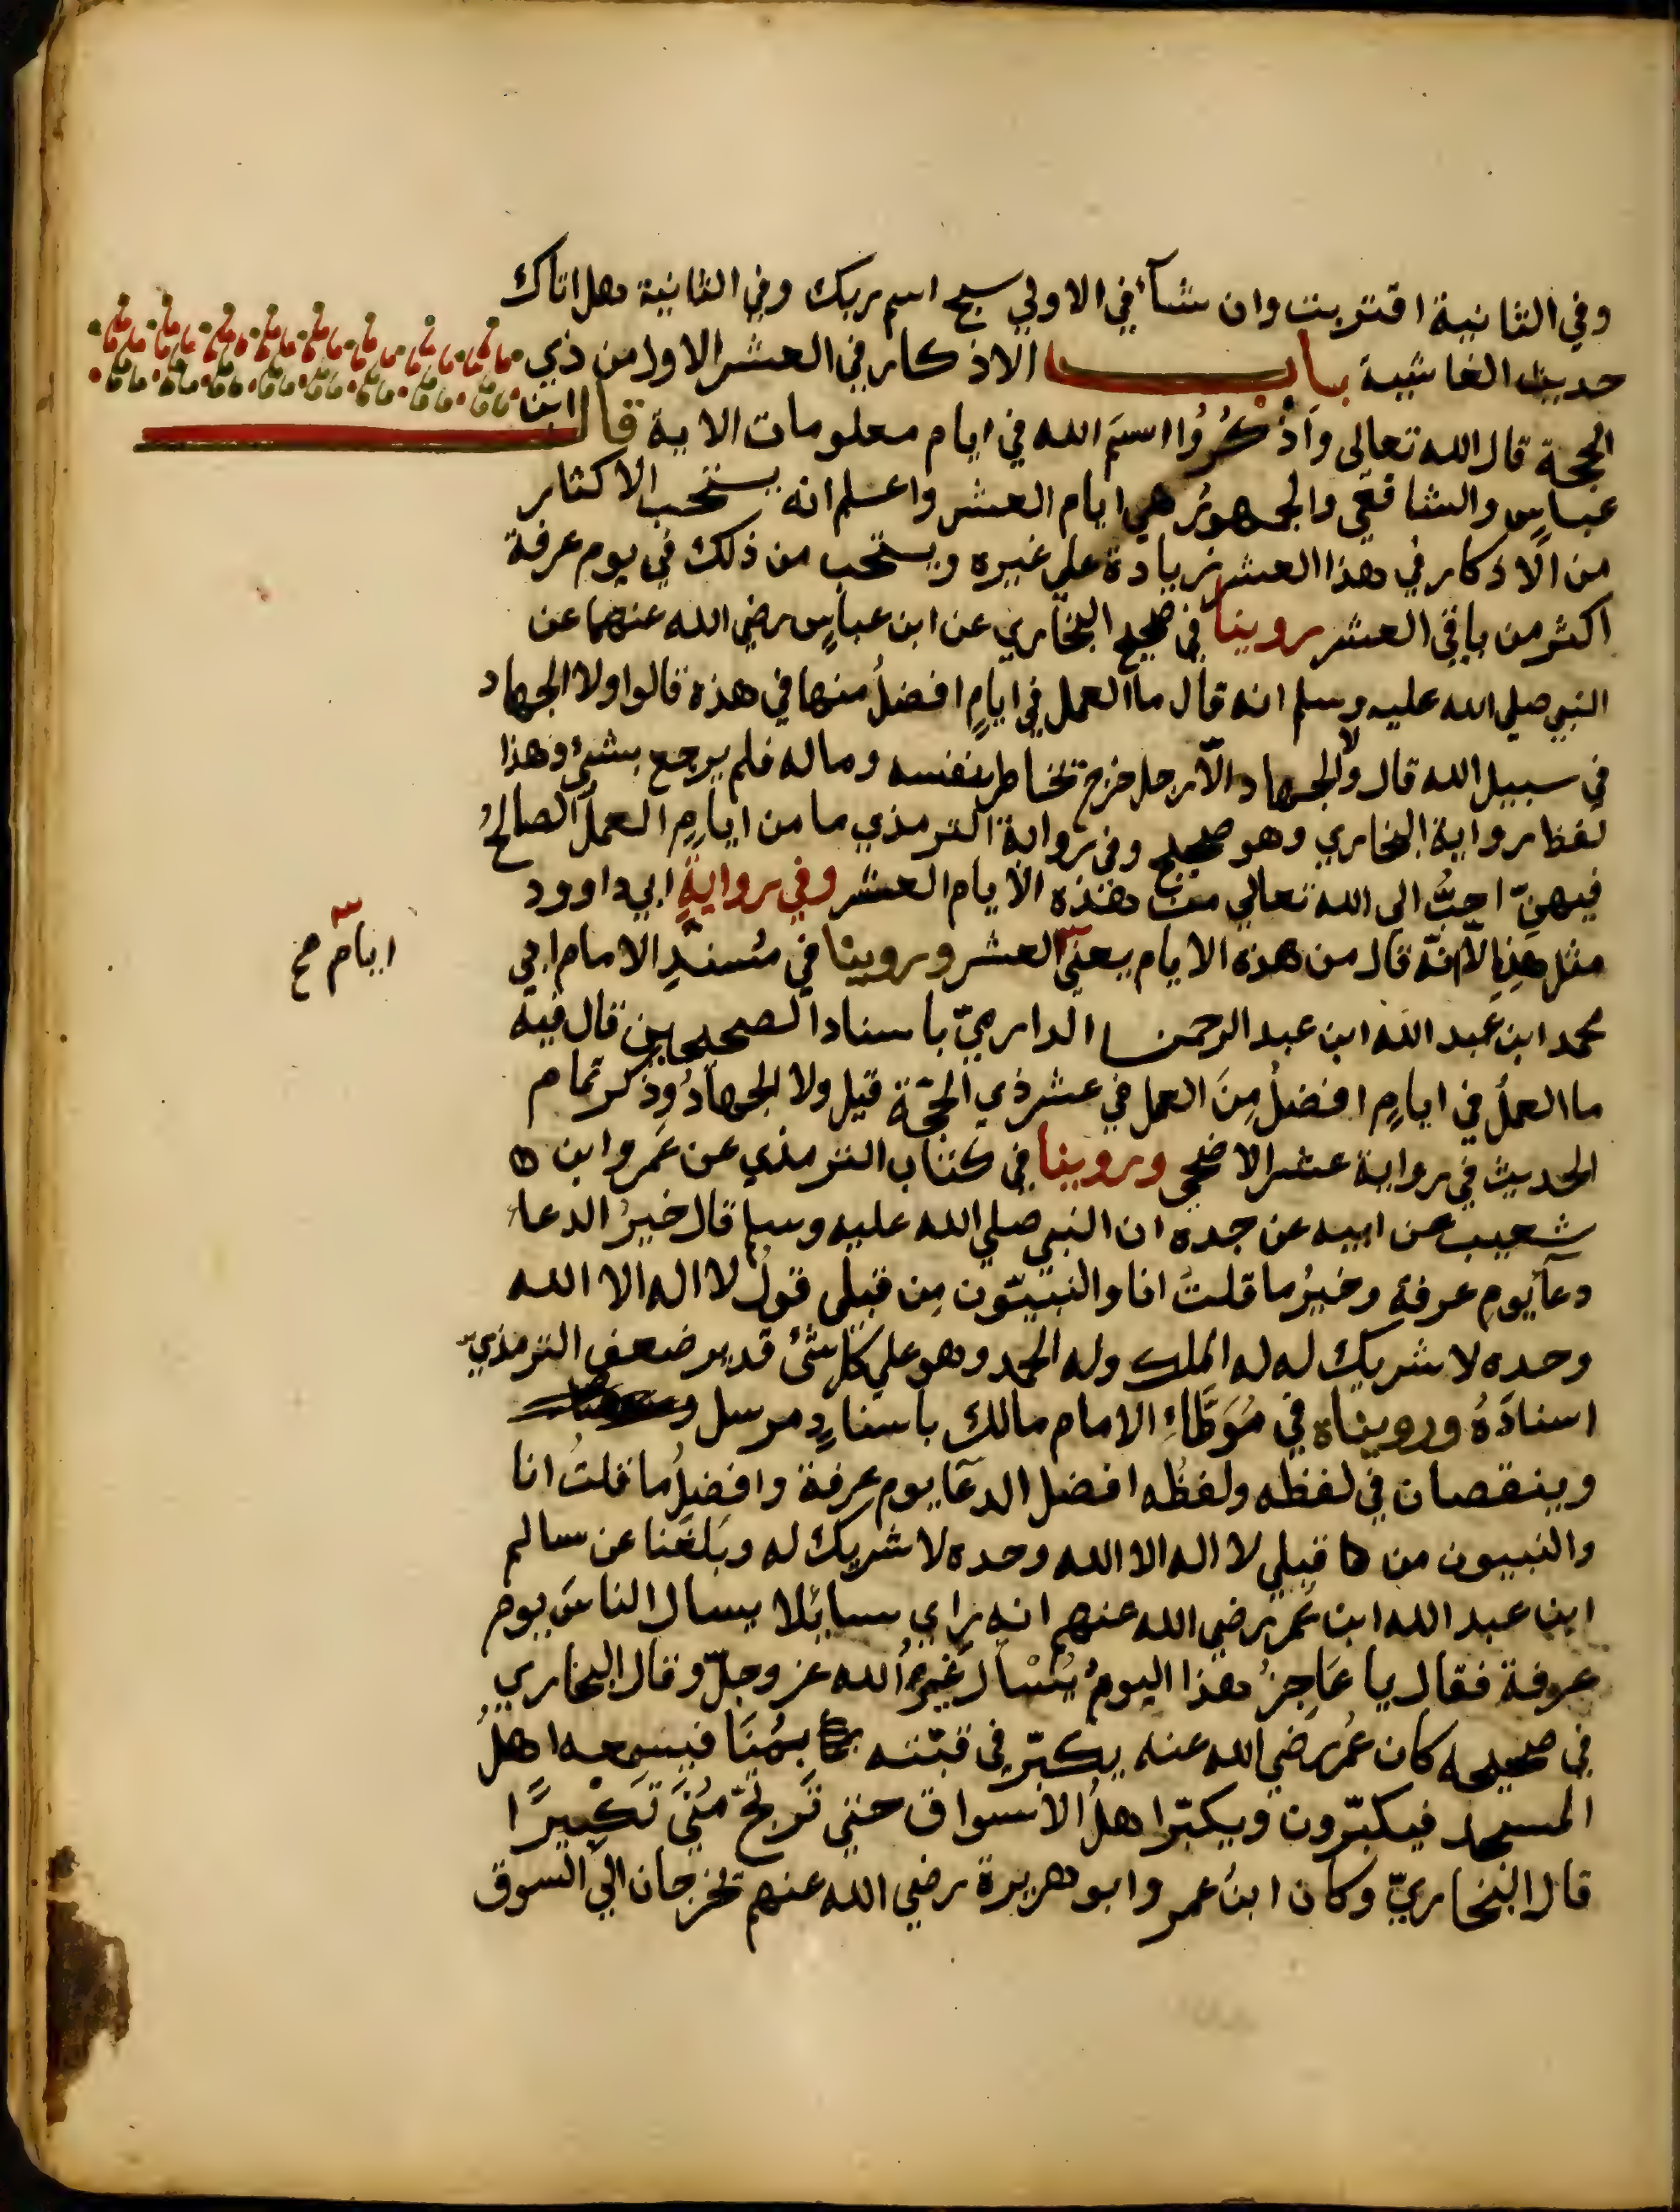 وفي الثانية اقتربت وان شآ في الاولي سبح اسم ربك وفي الثانية هل اتاك
حديث الغاشية باب الاذكار في العشر الاول من ذي
الحجة قال الله تعالى وَاذْكُرُوا اسمَ الله في ايام معلومات الاية قال ابن
عباسٍ والشافعي والجمهورُ هي ايام العشر واعلم انه يستحب الاكثار
من الاذكار في هذا العشر زيادة علي غيره ويستحب من ذلك في يوم عرفة
اكثر من باقي العشر روينا في صحيح البخاري عن ابن عباسٍ رضي الله عنهما عن
النبي صلي الله عليه وسلم انه قال ما العمل في ايامٍ افضلُ منها في هذه قالوا ولا الجهاد
في سبيل الله قال ولا الجهاد الّا رجل خرج يخاطر بنفسه وماله فلم يرجع بشيءٍ وهذا
لفظ رواية البخاري وهو صحيح وفي رواية الترمذي ما من ايامٍ العملُ الصالحُ
فيهنّ احبُّ الي الله تعالي من هذه الايام العشر وفي روايةٍ ابي داوود
مثل هذِهِ الّا انّه قال من هذه الايام يعني العشر وروينا في مُسندِ الامام ابي
ايام صح
محمد ابن عبد الله ابن عبد الرحمن الدارميّ باسناد الصحيحين قال فيه
ما العملُ في ايامٍ افضلُ مِنَ العمل في عشر ذي الحجّة قيل ولا الجهادُ وذكر تمام
الحديث في رواية عشر الاضحي وروينا في كتاب الترمذي عن عَمرو ابن
شعيب عن ابيه عن جده ان النبي صلي الله عليه وسلم قال خيرُ الدعاء
دعآ يوم عرفة وخيرُ ما قلتُ انا والنبيّون مِن قبلي قولُ لا اله الا الله
وحده لا شريك له له الملك وله الحمد وهو علي كل شئ قدير ضعف الترمذيّ
اسنادَهُ ورويناه في مُوَطّاءِ الامام مالك باسنادٍ مرسل
وينقصان في لفظه ولفظُه افضل الدعآ يوم عرفة وافضلُ ما قلتُ انا
والنبيون من قبلي لا اله الا الله وحده لا شريك له وبَلغَنا عن سالم
ابن عبد الله ابن عُمر رضي الله عنهم انه راي سايلا يسال الناسَ يوم
عرفة فقال يا عَاجزُ هذا اليومُ يُسْال غيرُ الله عز وجلّ وقال البخاري
في صحيحه كان عُمر رضي الله عنه يكبّر في قبّته بمُنَا فيسمعه اهلُ
المسجد فيكبّرون ويكبّر اهلُ الاسواق حتي تَرتجّ مُنَي تَكبِيرًا
قال البخاريّ وكان ابنُ عمر وابو هريرة رضي الله عنهم يخرجان الي السوق